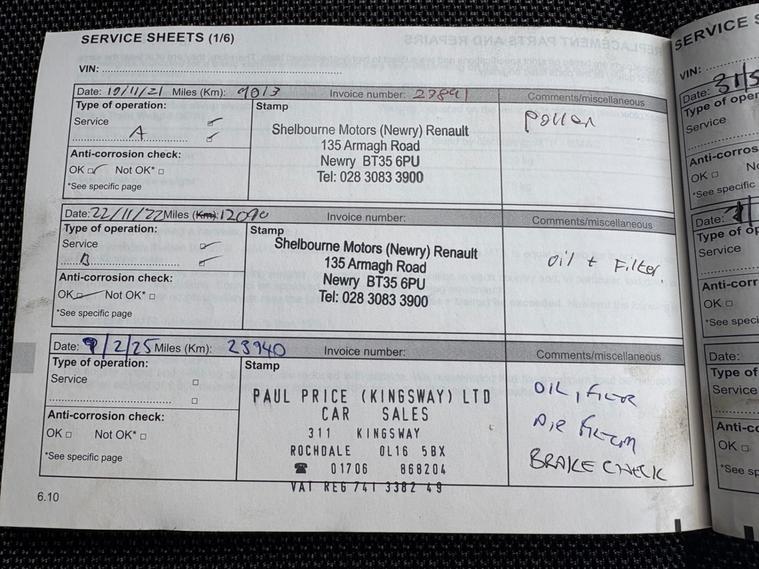 SERVICE SHEETS (1/6)
VIN:
Date: 19/11/21 Miles (Km): 9013 Invoice number: 27841
Type of operation:
Service
A
Anti-corrosion check:
OK Not OK*
*See specific page
Stamp
Shelbourne Motors (Newry) Renault
135 Armagh Road
Newry BT35 6PU
Tel: 028 3083 3900
Comments/miscellaneous
Pollen
Date: 22/11/22 Miles (Km): 12090 Invoice number:
Type of operation:
Service
B
Anti-corrosion check:
OK Not OK*
*See specific page
Stamp
Shelbourne Motors (Newry) Renault
135 Armagh Road
Newry BT35 6PU
Tel: 028 3083 3900
Comments/miscellaneous
oil + Filter.
Date: 9/2/25 Miles (Km): 23940 Invoice number:
Type of operation:
Service
Anti-corrosion check:
OK Not OK*
*See specific page
Stamp
PAUL PRICE (KINGSWAY) LTD
CAR SALES
311 KINGSWAY
ROCHDALE OL16 5BX
☎ 01706 868204
VAT REG 741 3382 49
Comments/miscellaneous
OIL, FILTER
AIR FILTER
BRAKE CHECK
6.10
SERVICE S
VIN:
Date: 31/5
Type of oper
Service
Anti-corros
OK
*See specific
Date:
Type of op
Service
Anti-corr
OK
*See speci
Date:
Type of
Service
Anti-c
OK
*See sp